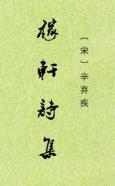 稼軒詩集
〔宋〕辛弃疾